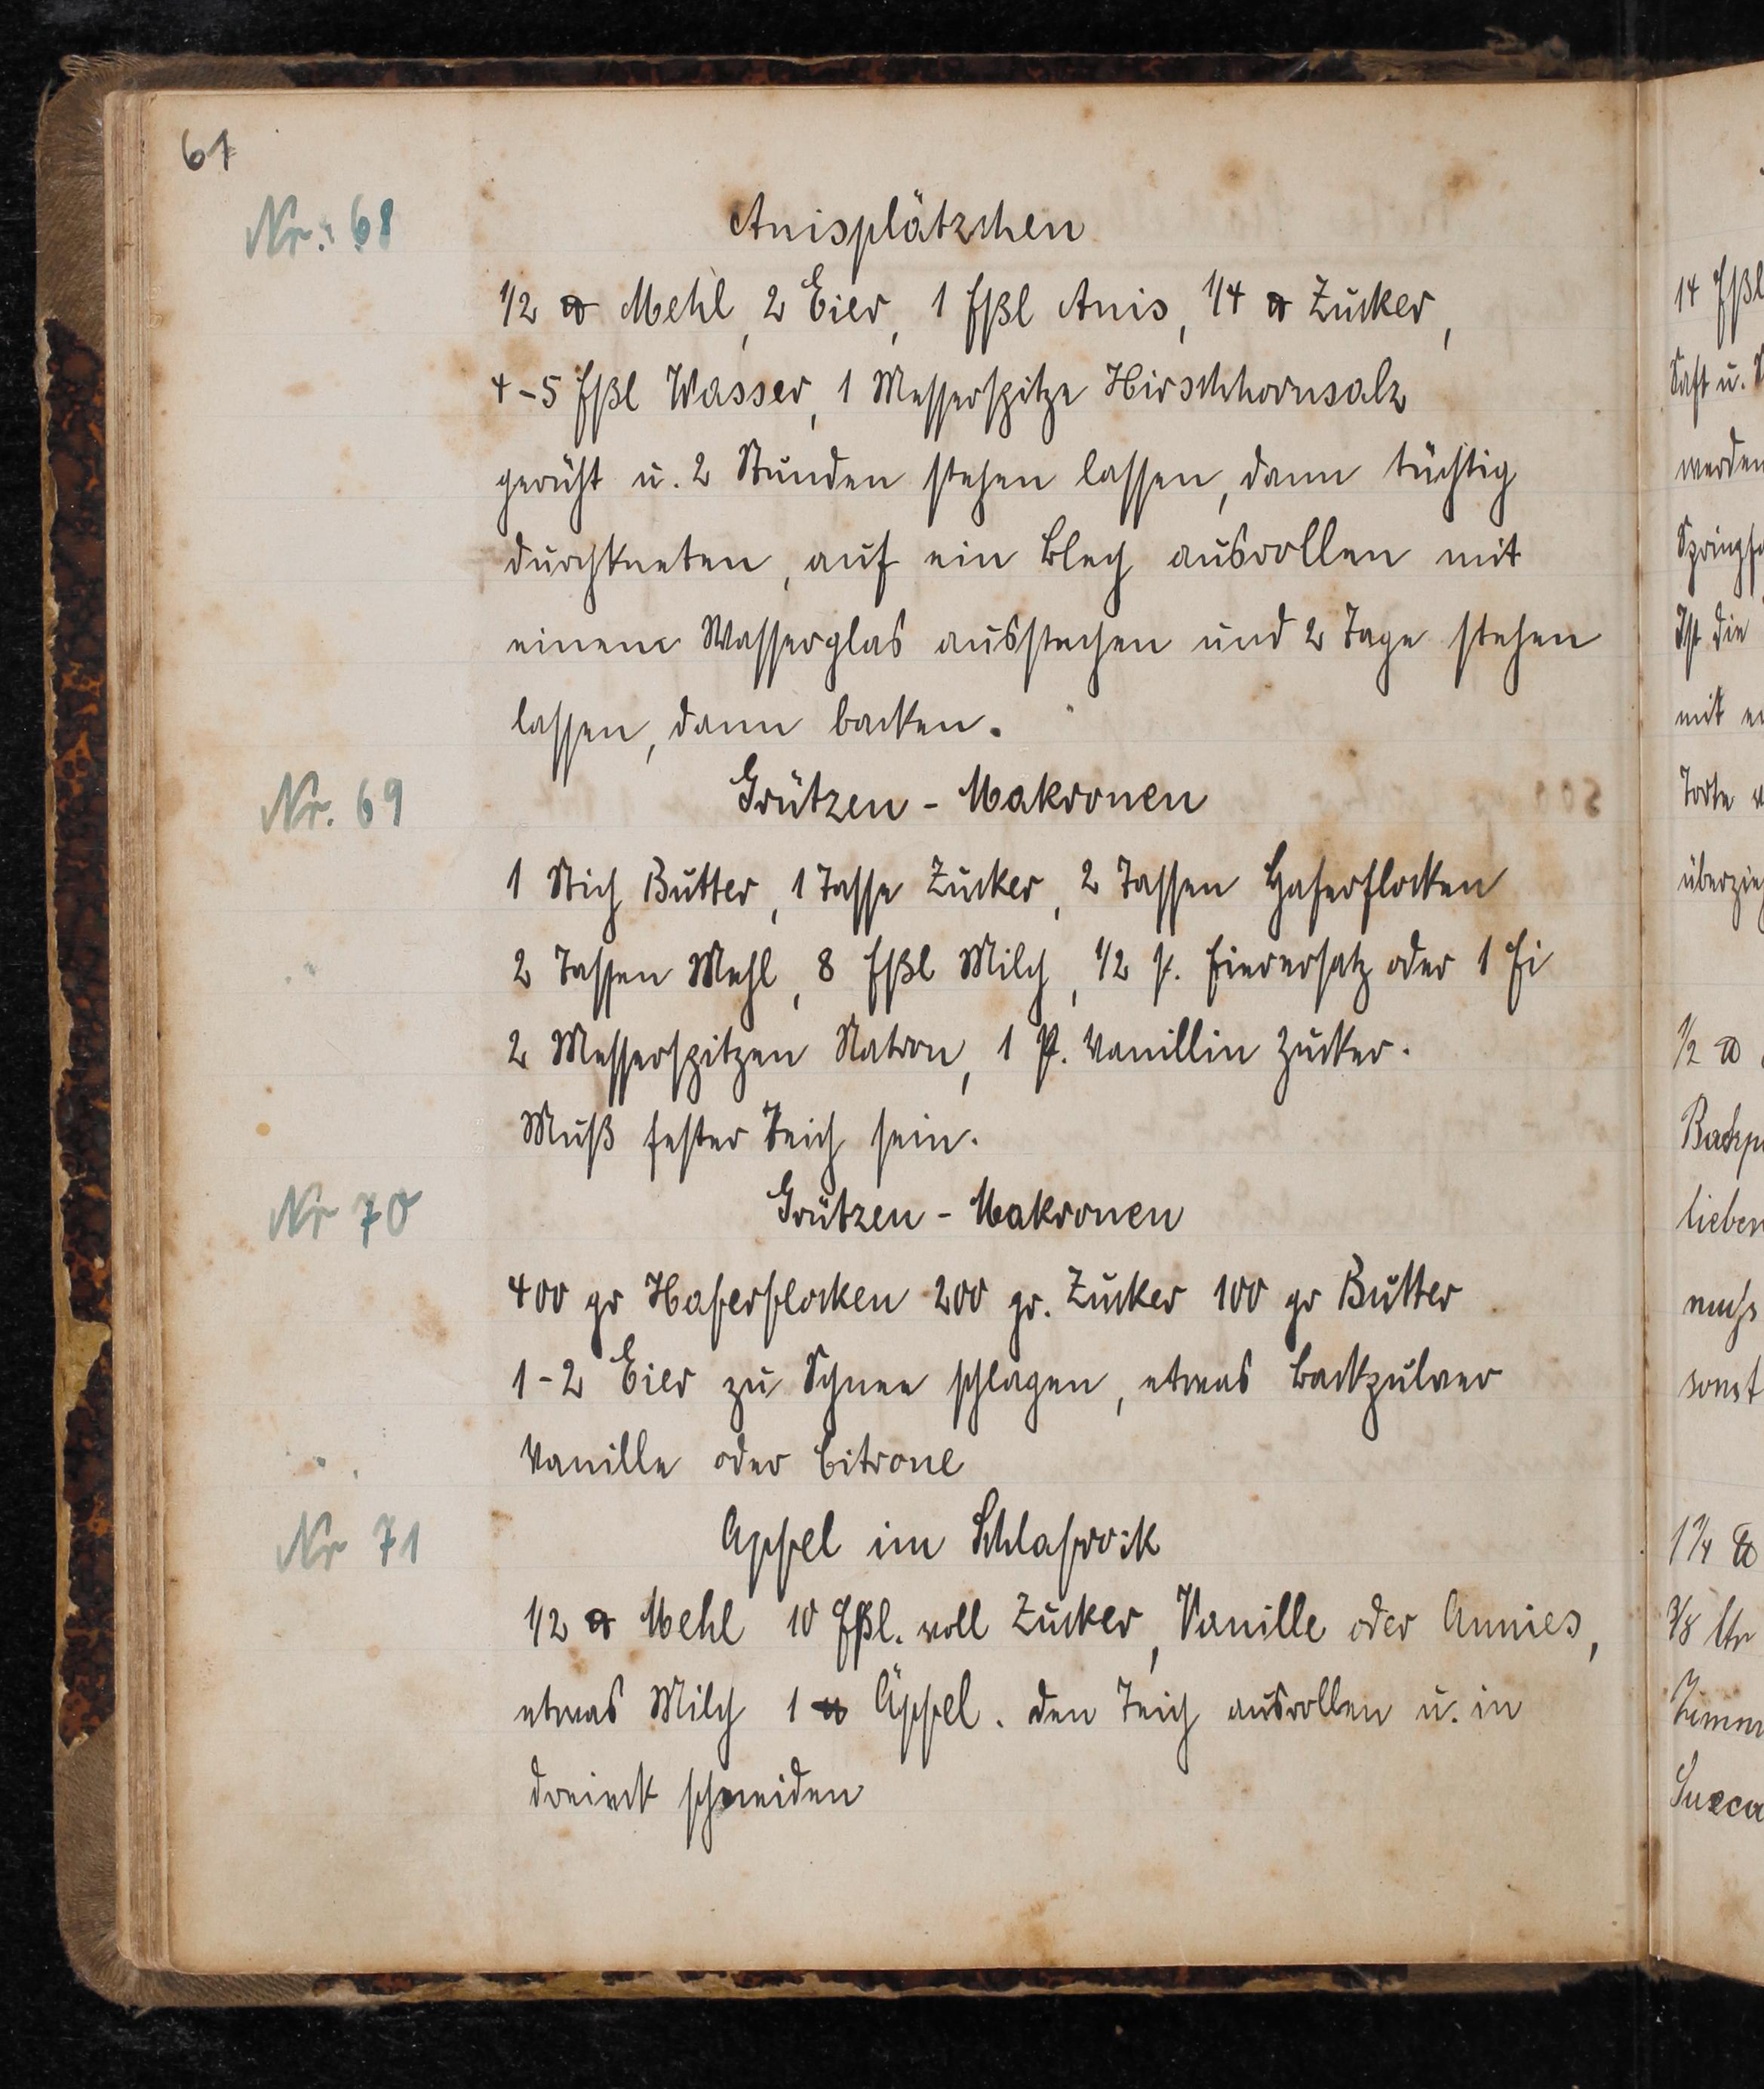 61
Nr. 68
Anisplätzchen
1/2 ℔ Mehl, 2 Eier, 1 Eßl Anis, 1/4 ℔ Zucker,
4-5 Eßl Wasser, 1 Messerspitze Hirschhornsalz
gerüht u. 2 Stunden stehen lassen, dann tüchtig
durchkneten, auf ein Blech ausrollen mit
einem Wasserglas ausstechen und 2 Tage stehen
lassen, dann backen.
Nr. 69
Grützen - Makronen
1 Stich Butter, 1 Tasse Zucker, 2 Tassen Haferflocken
2 Tassen Mehl, 8 Eßl Milch, 1/2 P. Eierersatz oder 1 Ei
2 Messerspitzen Natron, 1 P. Vanillin Zucker.
Muß fester Teich sein.
Nr 70
Grützen - Makronen
400 gr Haferflocken 200 gr. Zucker 100 gr Butter
1-2 Eier zu Schnee schlagen, etwas Backpulver
Vanille oder Citrone
Nr 71
Apfel im Schlafrock
1/2 ℔ Mehl 10 Eßl. voll Zucker, Vanille oder Annies,
etwas Milch 1 ℔ Äpfel. den Teich ausrollen u. in
dreieck schneiden
14 Eßl
Saft u.
werden
Ist die
mit
Torte
1/2 ℔
sonst
1 1/4 ℔